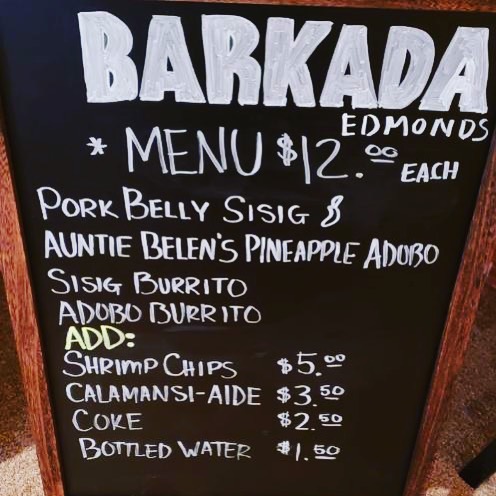 BARKADA
EDMONDS
* MENU $12.00 EACH
PORK BELLY SISIG &
AUNTIE BELEN'S PINEAPPLE ADOBO
SISIG BURRITO
ADOBO BURRITO
ADD:
SHRIMP CHIPS $5.00
CALAMANSI-AIDE $3.50
COKE $2.50
BOTTLED WATER $1.50